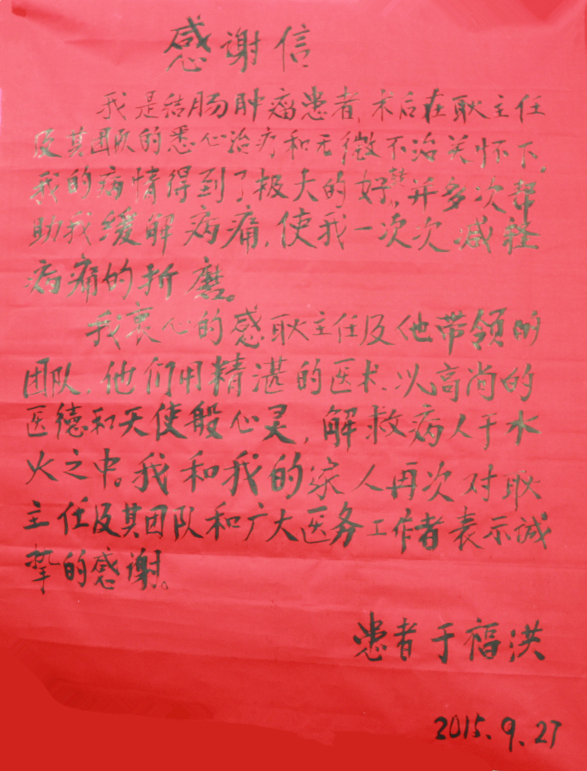 感谢信
我是结肠肿瘤患者,术后在耿主任
及其团队的悉心治疗和无微不治关怀下,
我的病情得到了极大的好转,并多次帮
助我缓解病痛,使我一次次减轻
病痛的折磨。
我衷心的感耿主任及他带领的
团队,他们用精湛的医术,以高尚的
医德和天使般心灵,解救病人于水
火之中。我和我的家人再次对耿
主任及其团队和广大医务工作者表示诚
挚的感谢。
患者于福洪
2015.9.27